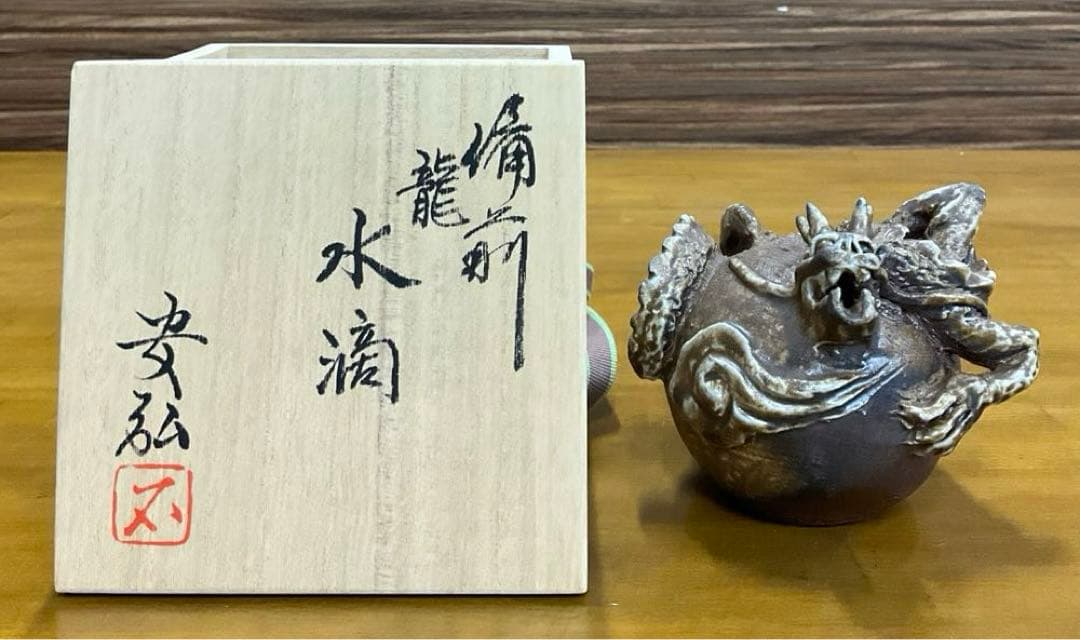 備前
龍
水滴
安弘